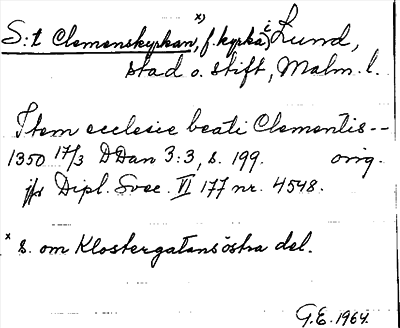 S:t Clemenskyrkan x), f. kyrka i Lund,
stad o. stift, Malm. l.
Item ecclesie beati Clementis --
1350 17/3 DDan 3:3, s. 199. orig.
jfr Dipl. Svec. VI 177 nr. 4548.
x s. om Klostergatans östra del.
G.E. 1964.